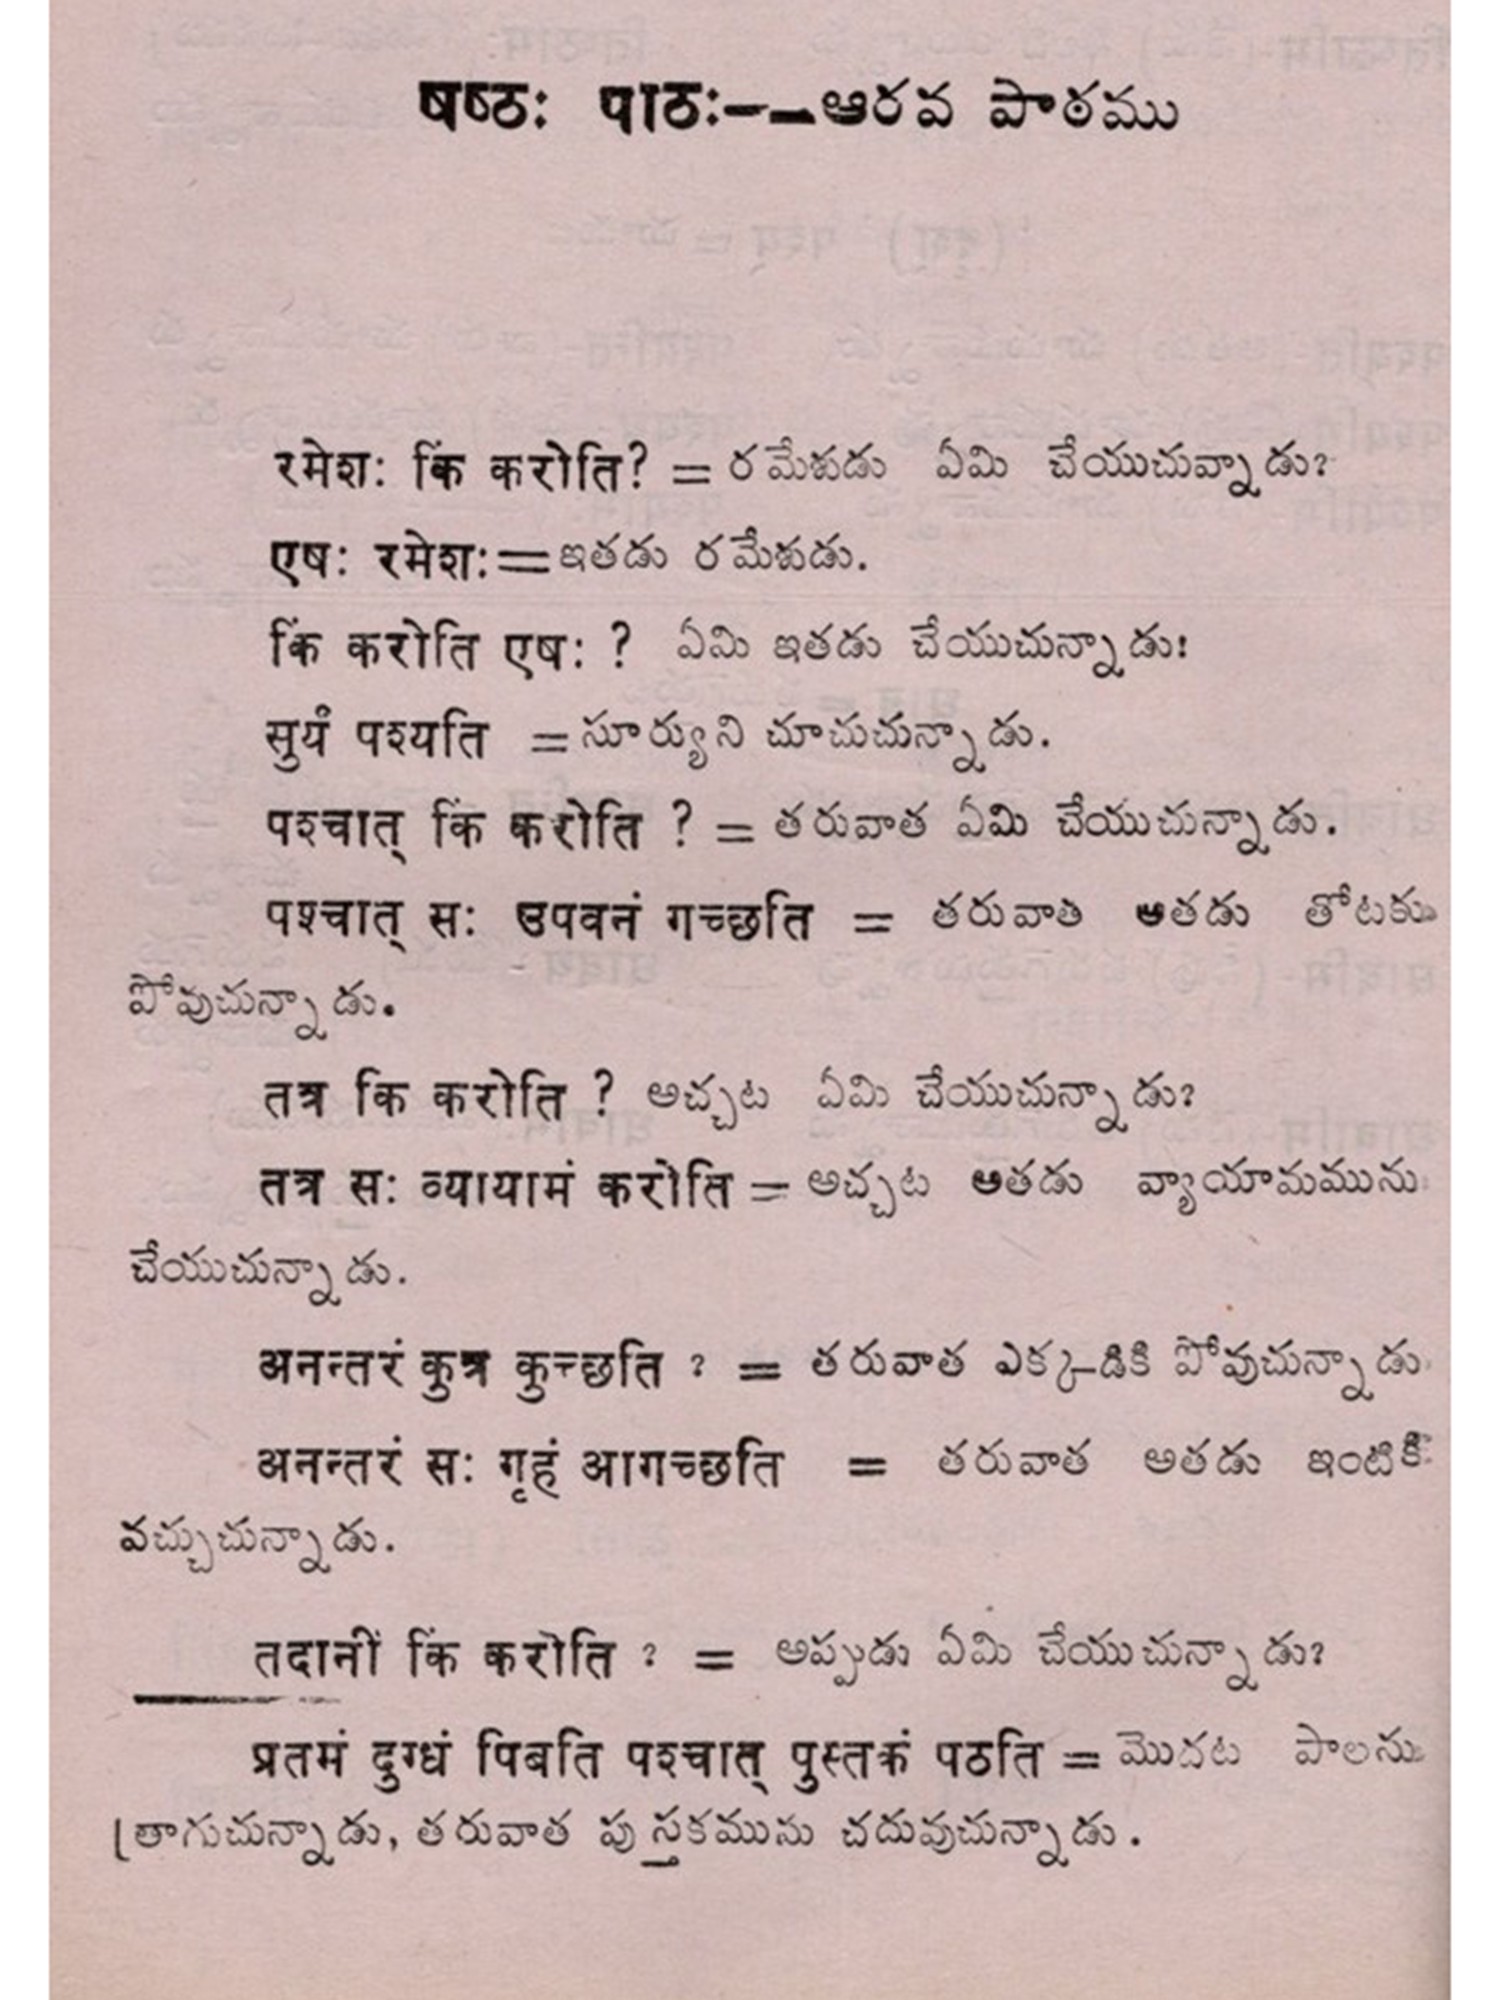 षष्ठः पाठः--ఆరవ పాఠము
रमेशः किं करोति? = రమేశుడు ఏమి చేయుచున్నాడు?
एषः रमेशः=ఇతడు రమేశుడు.
किं करोति एषः ? ఏమి ఇతడు చేయుచున్నాడు?
सुर्यं पश्यति =సూర్యుని చూచుచున్నాడు.
पश्चात् किं करोति ? = తరువాత ఏమి చేయుచున్నాడు.
पश्चात् सः उपवनं गच्छति = తరువాత ఆతడు తోటకు
పోవుచున్నాడు.
तत्र कि करोति ? అచ్చట ఏమి చేయుచున్నాడు?
तत्र सः व्यायामं करोति = అచ్చట ఆతడు వ్యాయామమును
చేయుచున్నాడు.
अनन्तरं कुत्र कुच्छति ? = తరువాత ఎక్కడికి పోవుచున్నాడు
अनन्तरं सः गृहं आगच्छति = తరువాత అతడు ఇంటికి
వచ్చుచున్నాడు.
तदानीं किं करोति ? = అప్పుడు ఏమి చేయుచున్నాడు?
प्रतमं दुग्धं पिबति पश्चात् पुस्तकं पठति = మొదట పాలను
త్రాగుచున్నాడు, తరువాత పుస్తకమును చదువుచున్నాడు.